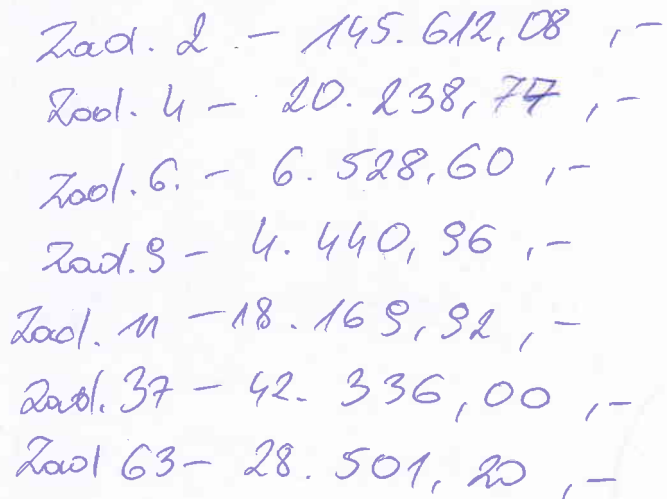 Zad. 2 - 145.612,08 ,-
Zad. 4 - 20.238,77 ,-
Zad. 6. - 6.528,60 ,-
Zad. 9 - 4.440,96 ,-
Zad. 11 - 18.169,92 ,-
Zad. 37 - 42.336,00 ,-
Zad 63 - 28.501,20 ,-